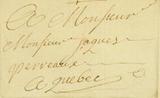 A Monsieur
Monsieur Jaques
perveaux
A quebec